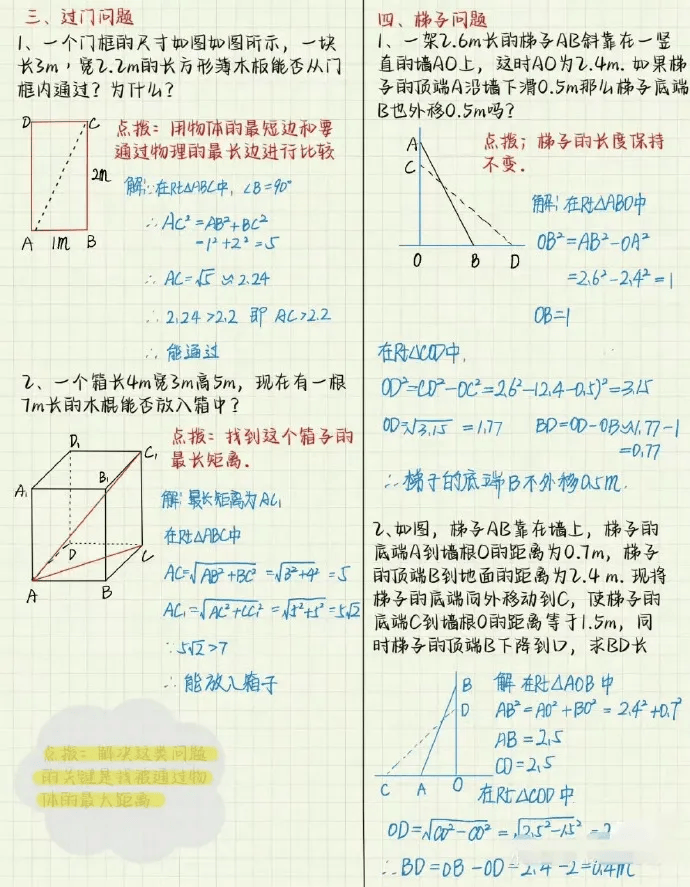 三、过门问题
1、一个门框的尺寸如图如图所示，一块
长3m，宽2.2m的长方形薄木板能否从门
框内通过？为什么？
D
C
2m
A 1m B
点拨：用物体的最短边和要
通过物理的最长边进行比较
解：∵在Rt△ABC中，∠B=90°
∴AC²=AB²+BC²
=1²+2²=5
∴AC=√5≈2.24
∴2.24>2.2 即 AC>2.2
∴能通过
2、一个箱长4m宽3m高5m，现在有一根
7m长的木棍能否放入箱中？
D₁
C₁
A₁
B₁
D
C
A
B
点拨：找到这个箱子的
最长距离.
解：最长距离为AC₁
在Rt△ABC中
AC=√AB²+BC²=√3²+4²=5
AC₁=√AC²+CC₁²=√5²+5²=5√2
∵5√2>7
∴能放入箱子
点拨：解决这类问题
的关键是找被通过物
体的最大距离
四、梯子问题
1、一架2.6m长的梯子AB斜靠在一竖
直的墙AO上，这时AO为2.4m.如果梯
子的顶端A沿墙下滑0.5m那么梯子底端
B也外移0.5m吗？
A
C
O B D
点拨；梯子的长度保持
不变.
解：在Rt△ABO中
OB²=AB²-OA²
=2.6²-2.4²=1
OB=1
在Rt△COD中，
OD²=CD²-OC²=2.6²-(2.4-0.5)²=3.15
OD=√3.15≈1.77 BD=OD-OB≈1.77-1
=0.77
∴梯子的底端B不外移0.5m.
2、如图，梯子AB靠在墙上，梯子的
底端A到墙根O的距离为0.7m，梯子
的顶端B到地面的距离为2.4m.现将
梯子的底端向外移动到C，使梯子的
底端C到墙根O的距离等于1.5m，同
时梯子的顶端B下降到D，求BD长
B
D
C A O
解 在Rt△AOB中
AB²=AO²+BO²=2.4²+0.7²
AB=2.5
CD=2.5
在Rt△COD中
OD=√CD²-CO²=√2.5²-1.5²=2
∴BD=OB-OD=2.4-2=0.4m